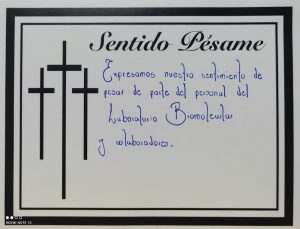 Sentido Pésame
Expresamos nuestro sentimiento de
pesar de parte del personal del
Laboratorio Biomolecular
y colaboradores.
REDMI NOTE 10